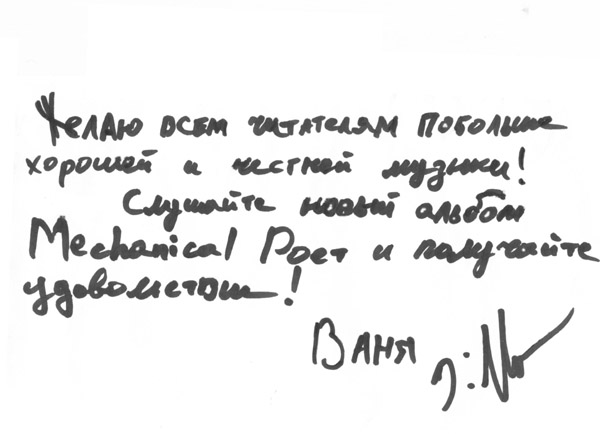 Желаю всем читателям побольше
хорошей и честной музыки!
Слушайте новый альбом
Mechanical Poet и получайте
удовольствие!
Ваня